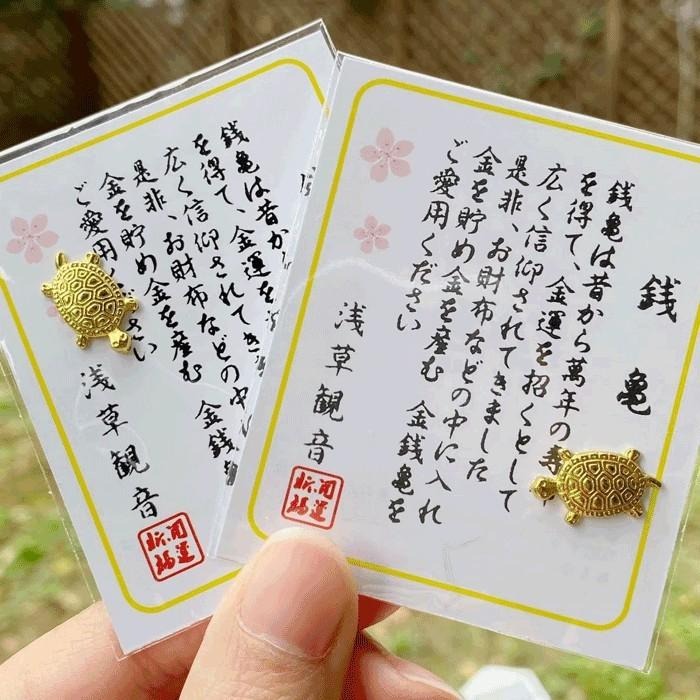 銭亀
銭亀は昔から萬年の寿
を得て、金運を招くとして
広く信仰されてきました
是非、お財布などの中に入れ
金を貯め金を産む 金銭亀を
ご愛用ください
浅草観音
開運
銭亀は昔か
を得て、金運を
広く信仰されてき
是非、お財布などの中に
金を貯め金を産む 金銭
ご愛用ください
浅草観音
開運